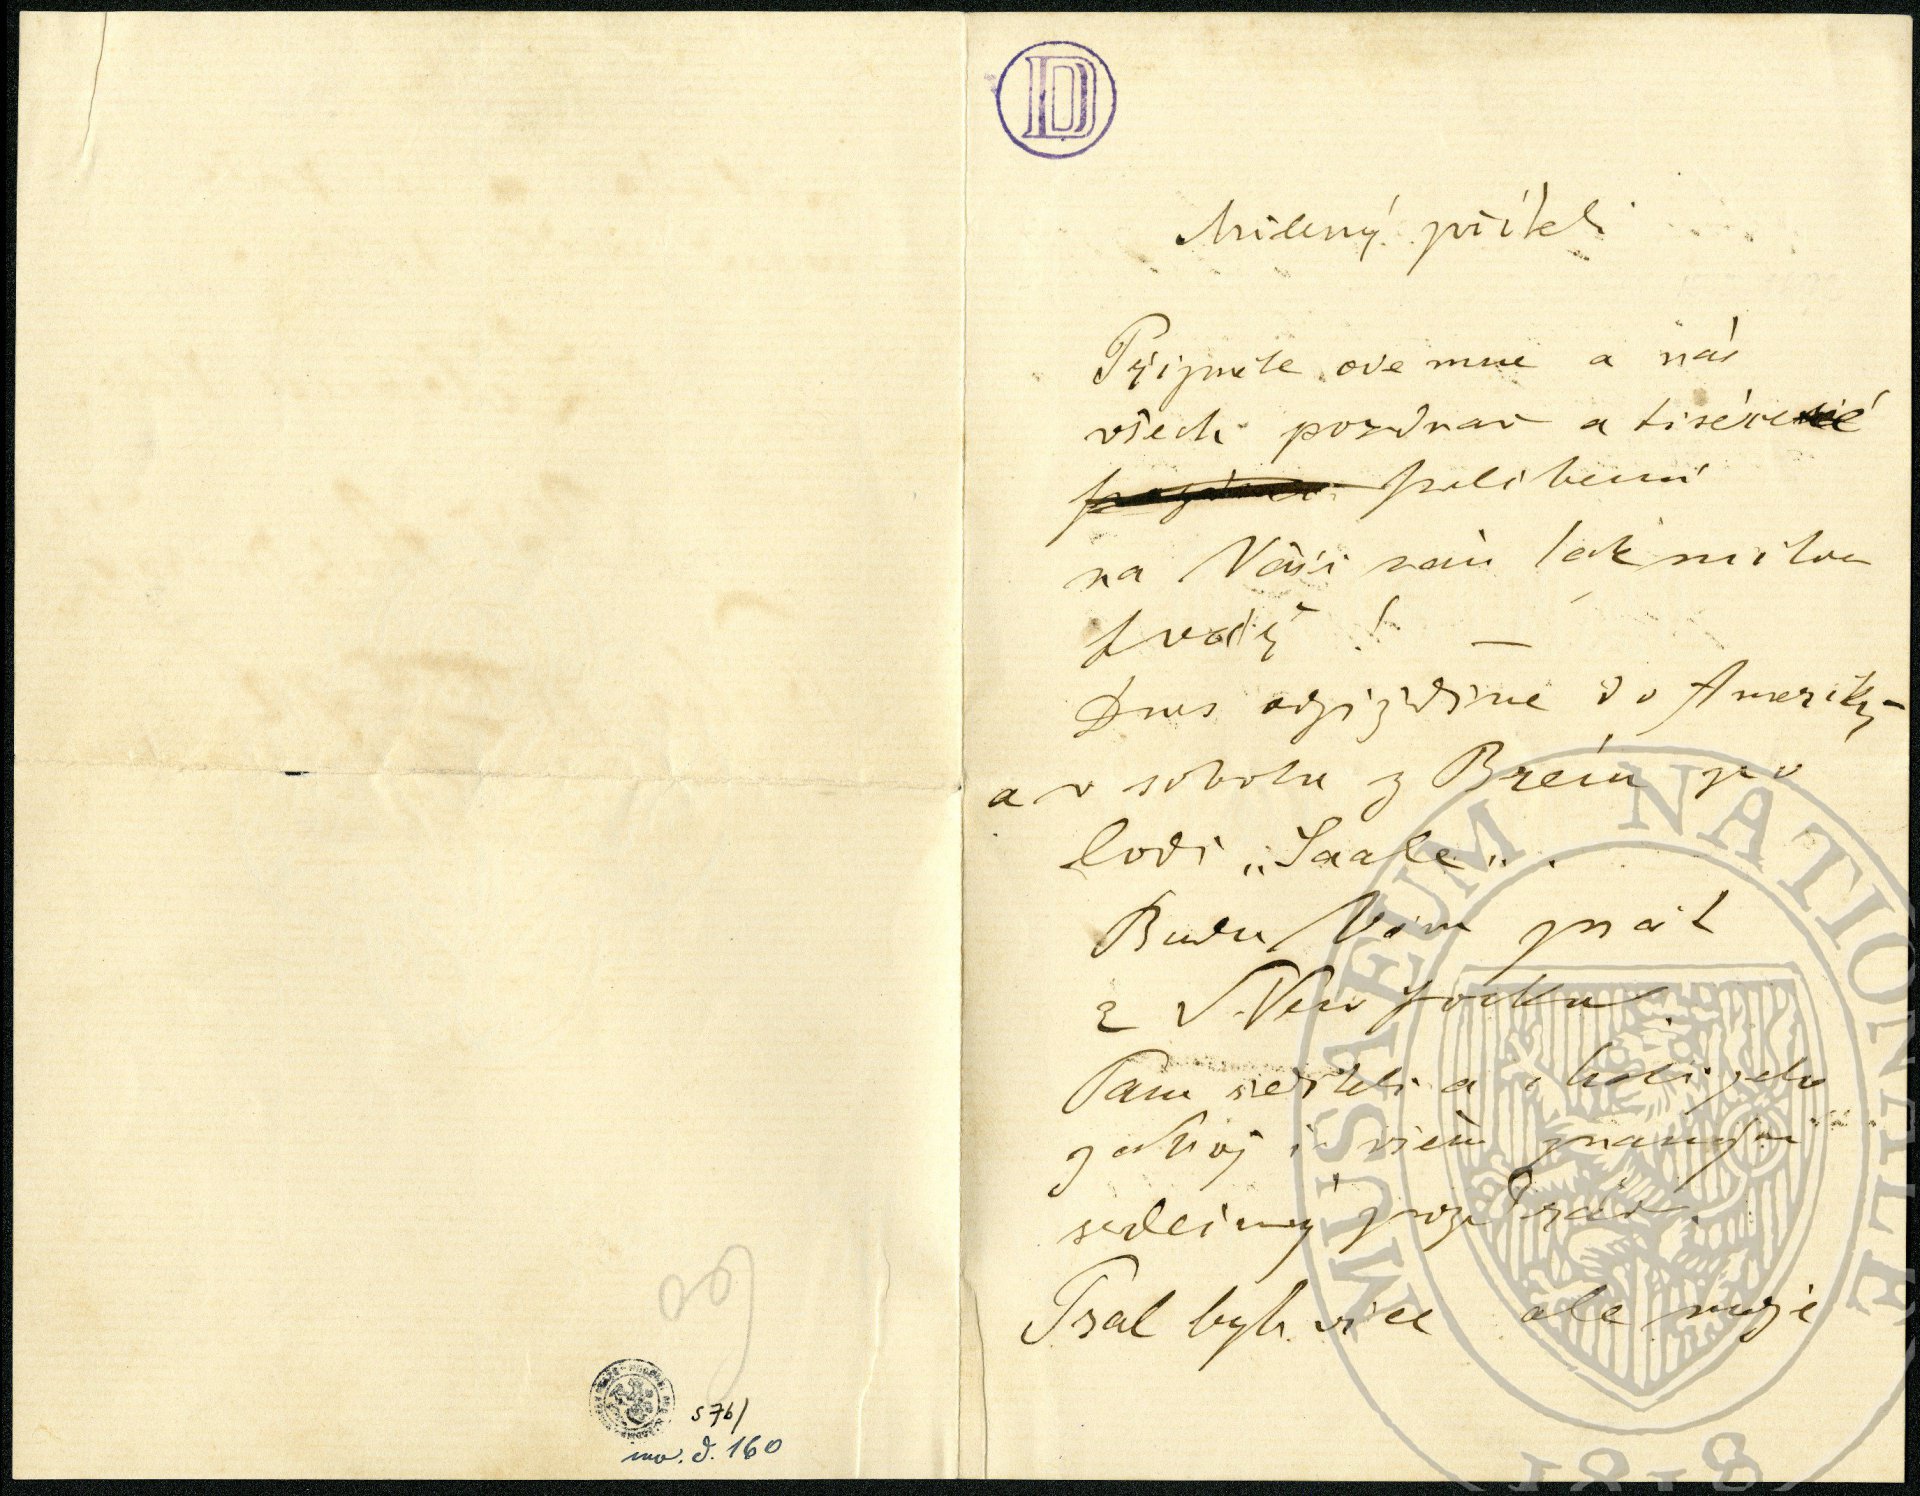 D
Milený příteli
Přijmete ode mne a nás
všech pozdrav a tisíceré
políbení
na Váši nám tak milou
tvóŕ !
Dnes odjiždime do Ameriky
a v sobotu z Brém po
lodi „Saale“.
Budu Vám psát
z New Yorku.
Pane řediteli a
jakož i všem znamým
srdeiný pozdrav.
Psal bych vice ale moje
576/
inv. č. 160
MUSAEUM NATIONALE
1818